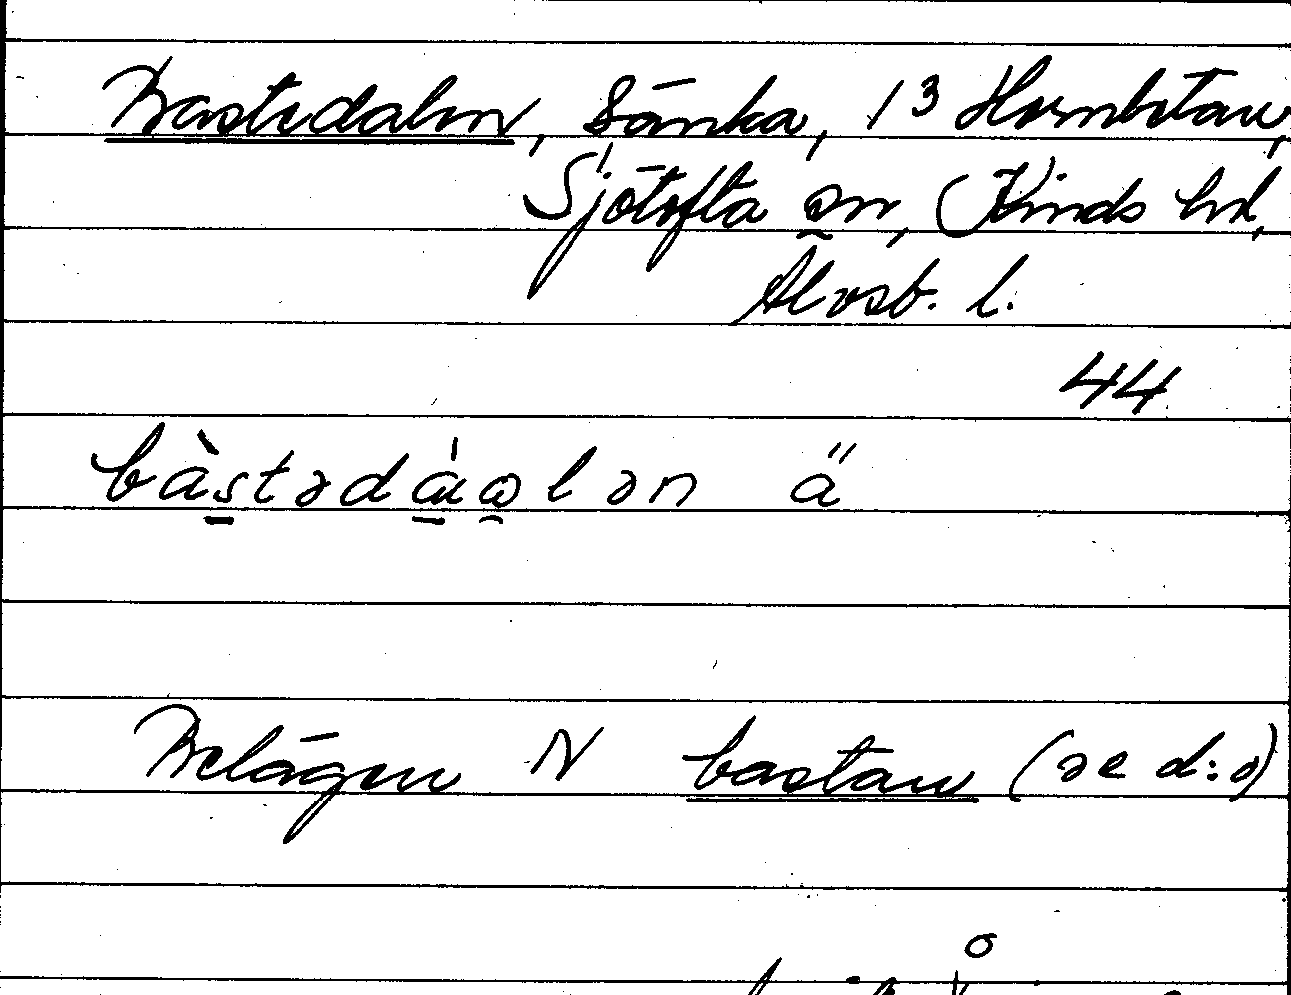 Bastedalen, Sänka, 13 Hornbetan,
Sjötofta sn, Kinds hd,
Älvsb. l.
44
bàstədàɑlən ä
Belägen N bastan (se d:o)